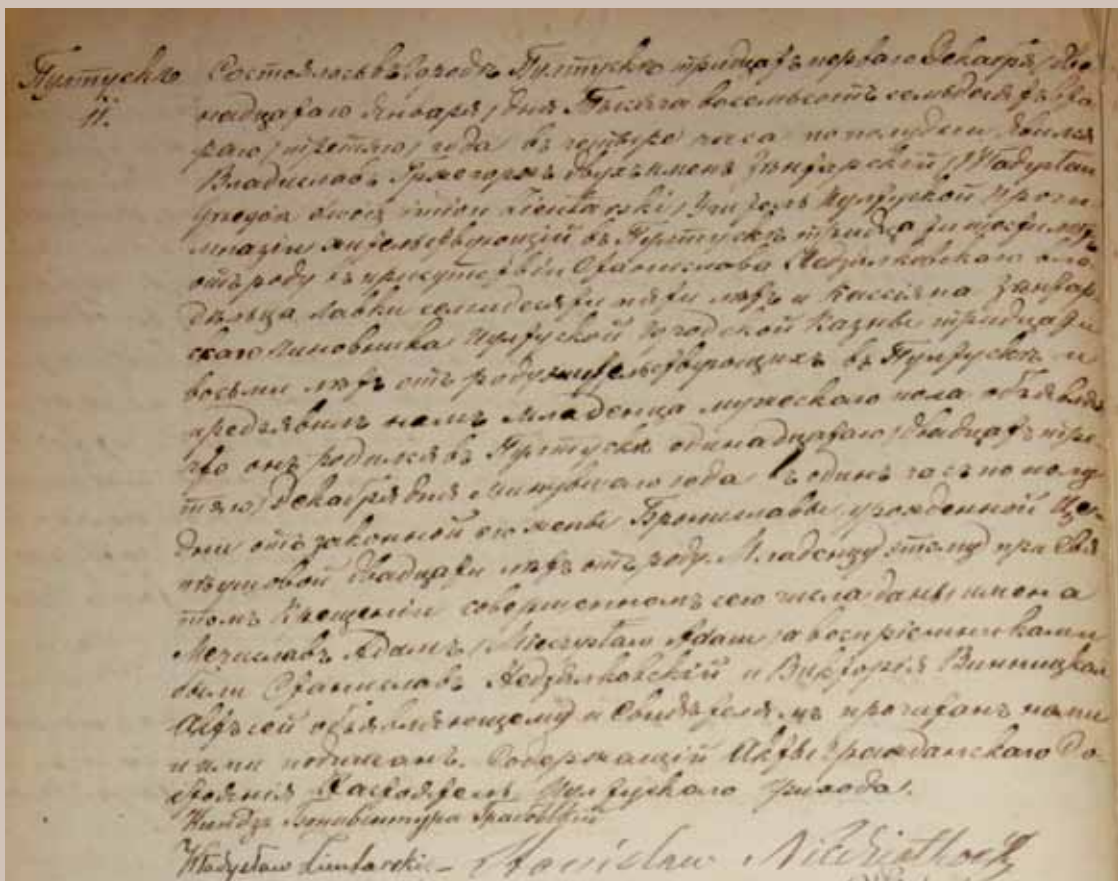 Пултускъ
11.
Состоялось въ Городѣ Пултускѣ тридцать перваго Декабря / две
надцатаго Января / дня Тысяча восемьсотъ семьдесятъ вто
раго / третьяго / года въ четыре часа по полудни Явился
Владиславъ Гржегоржъ двухъ именъ Зентарскій / Władysław
Grzegorz dwóch imion Zientarski / Учитель Пултуской Проги
мназіи жительствующій въ Пултускѣ тридцати лѣтъ
отъ роду въ присутствіи Станислава Недзялковскаго вла
дѣльца лавки семидесяти пяти лѣтъ и Кассіяна Зентар
скаго Чиновника Пултуской Городской Казны тридцати
восьми лѣтъ отъ роду жительствующихъ въ Пултускѣ и
предъявилъ намъ Младенца мужескаго пола объявляя
что онъ родился въ Пултускѣ одинадцатаго / двадцать тре
тьяго / Декабря дня минувшаго года въ одинъ часъ по полу
дни отъ законной его жены Брониславы урожденной
двадцати лѣтъ отъ роду. Младенцу этому при Свя
томъ Крещеніи совершенномъ сего числа даны имена
Мечиславъ Адамъ / Mieczysław Adam / а воспріемниками
были Станиславъ Недзялковскій и Викторія Винницкая
Актъ сей объявляющему и Свидѣтелямъ прочитанъ нами
и ими подписанъ. Содержащій Акты Гражданскаго Со-
стоянія Настоятель Пултускаго Прихода.
Ксендзъ Бонавентура
Władysław Zientarski – Stanisław Niedziałkowski